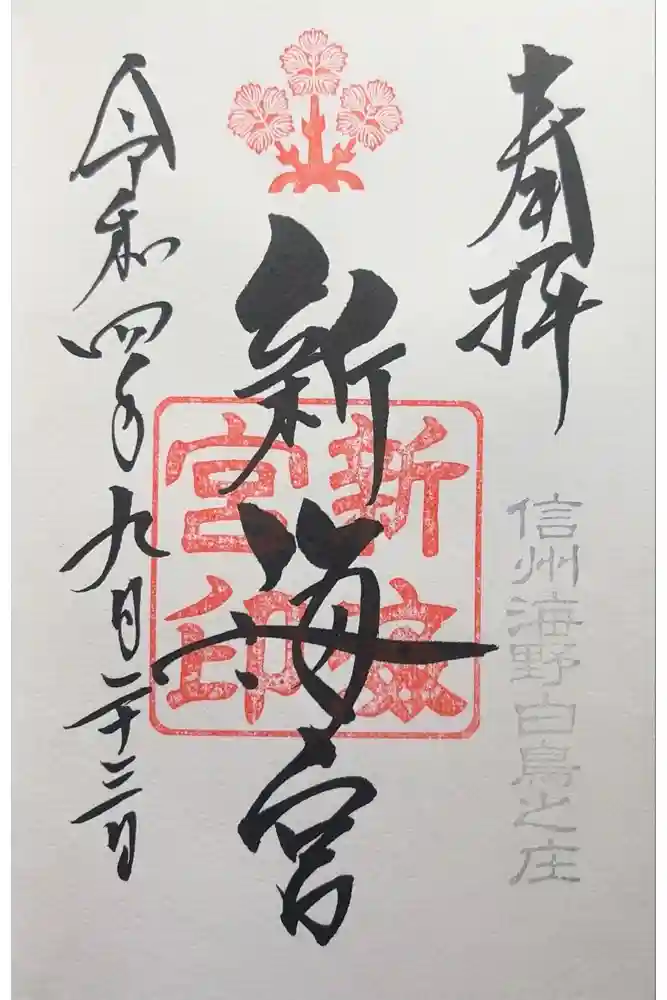 奉拝
信州海野白鳥之庄
新海宮
新
宮印
令和四年九月二十三日